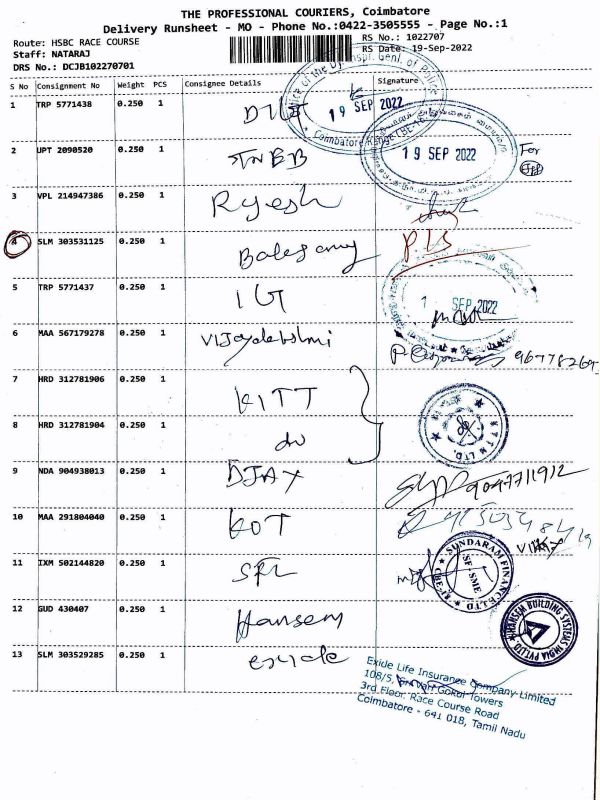 THE PROFESSIONAL COURIERS, Coimbatore
Delivery Runsheet - MO - Phone No.:0422-3505555 - Page No.:1
Route: HSBC RACE COURSE
RS No.: 1022707
Staff: NATARAJ
RS Date: 19-Sep-2022
DRS No.: DCJB102270701
S No Consignment No Weight PCS Consignee Details Signature
1 TRP 5771438 0.250 1
19 SEP 2022
Coimbatore Range
2 UPT 2090520 0.250 1 TNBB
19 SEP 2022
For
3 VPL 214947386 0.250 1 Rajesh
4 SLM 303531125 0.250 1
5 TRP 5771437 0.250 1 IG
SEP 2022
6 MAA 567179278 0.250 1
7 HRD 312781906 0.250 1 KITT
8 HRD 312781904 0.250 1 do
9 NDA 904938013 0.250 1 DJAX
9047711912
10 MAA 291804040 0.250 1 KOT
11 IXM 502144820 0.250 1 SFL
SUNDARAM FINANCE LTD
SF - SME
CBE
12 GUD 430407 0.250 1 Hansem
HANSEM BUILDING SYSTEMS INDIA PVT LTD
13 SLM 303529285 0.250 1 exide
Exide Life Insurance Company Limited
108/5, Gokul Towers
3rd Floor, Race Course Road
Coimbatore - 641 018, Tamil Nadu